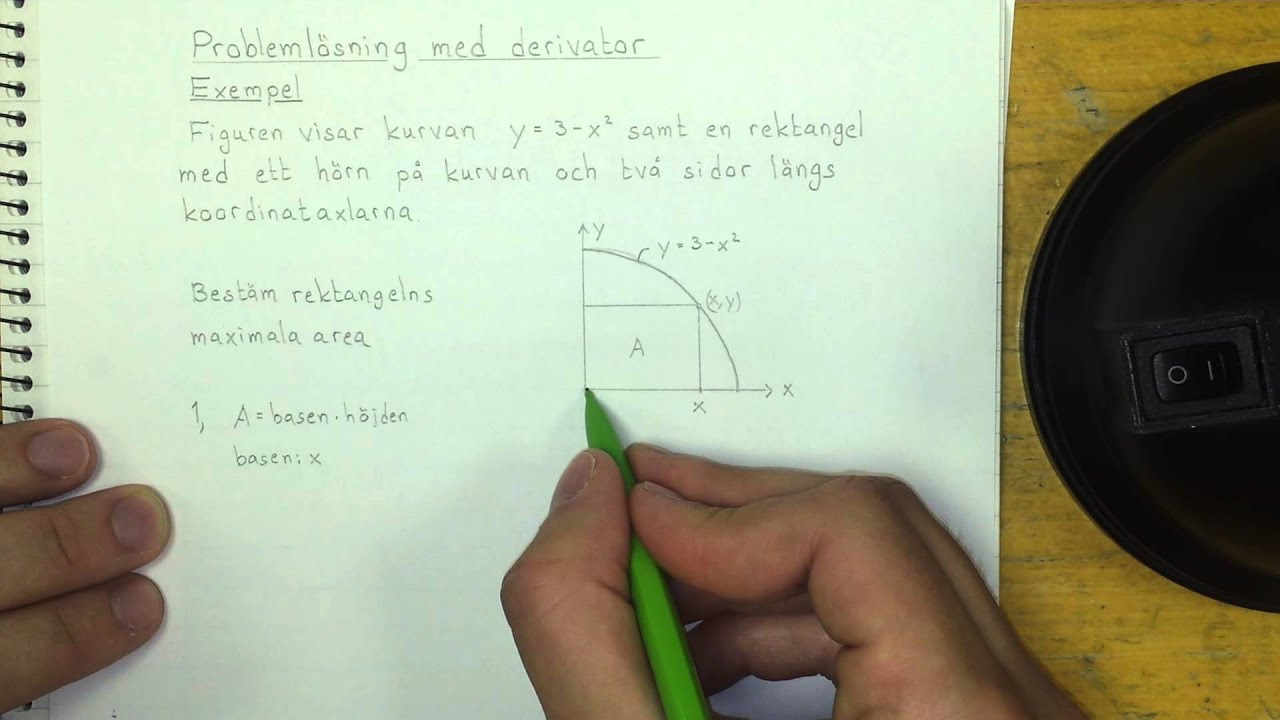 Problemlösning med derivator
Exempel
Figuren visar kurvan y = 3 - x² samt en rektangel
med ett hörn på kurvan och två sidor längs
koordinataxlarna.
y
y = 3 - x²
(x, y)
A
x
x
Bestäm rektangelns
maximala area
1, A = basen · höjden
basen: x